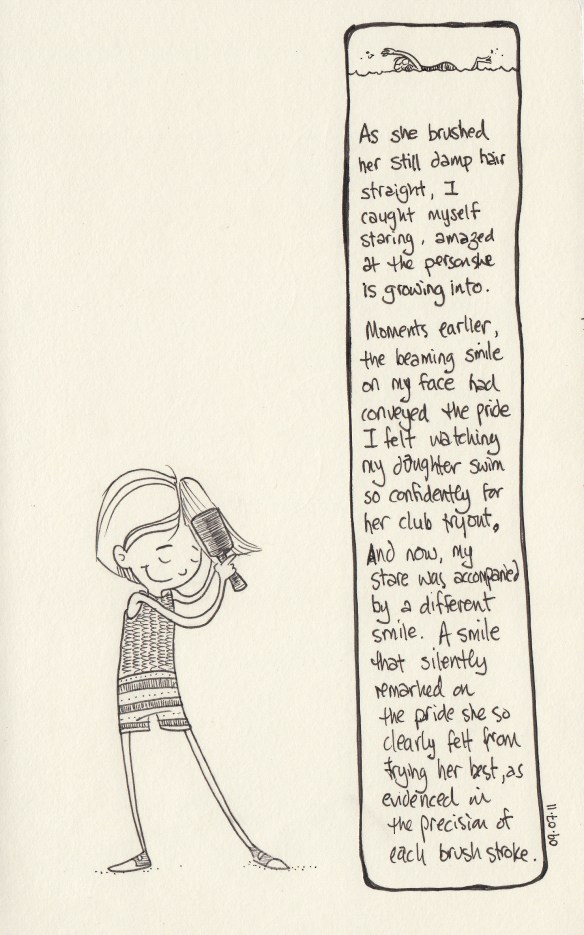 As she brushed
her still damp hair
straight, I
caught myself
staring, amazed
at the person she
is growing into.
Moments earlier,
the beaming smile
on my face had
conveyed the pride
I felt watching
my daughter swim
so confidently for
her club tryout.
And now, my
stare was accompanied
by a different
smile. A smile
that silently
remarked on
the pride she so
clearly felt from
trying her best, as
evidenced in
the precision of
each brush stroke.
09.07.11